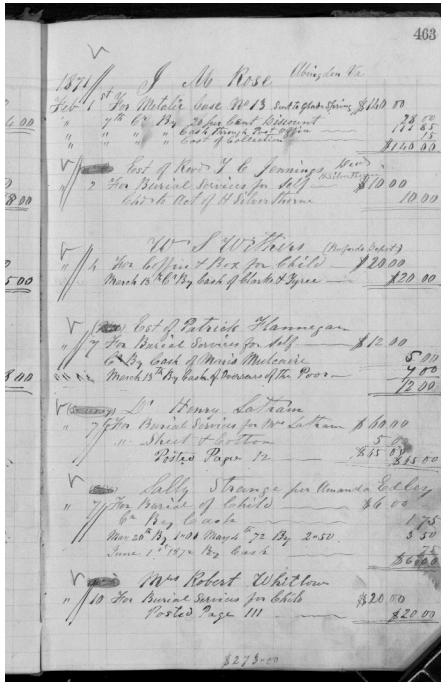 463
1871 J M Rose Abingdon Va
Feb 1st For Metalic Case No 13 Sent to Glade Spring $140 00
" " 7th Cr By 20 per Cent Discount 28 00
" " " " Cash through Post Office 111 85
" " " " Cost of Collection 15
$140 00
Est of Revd T C Jennings
" 2 For Burial Services for Self $10.00
Chd to Act of H Silverthorne 10.00
W S Withers (Bufords Depot)
" 4 For Coffin & Box for Child $20 00
March 13th Cr By Cash of Clark & Tyree $20 00
Est of Patrick Flannegan
" 7 For Burial Services for Self $12 00
Cr By Cash of Maria Mulcaire 5 00
March 13th By Cash of Overseers of the Poor 7 00
12 00
Dr Henry Latham
" 7 For Burial Services for Mrs Latham $60.00
" Sheet & Cotton 5 00
Posted Page 12 $65 00 $65 00
Sally Strange per Amanda
" 7 For Burial of Child $6.00
Cr By Cash 1 75
May 4th 72 By 2.50 3 50
June 1st 1872 By Cash 75
$6 00
Mrs Robert Whitlow
" 10 For Burial Services for Child $20 00
Posted Page 111 $20 00
$273.00
4 00
8 00
5 00
8 00